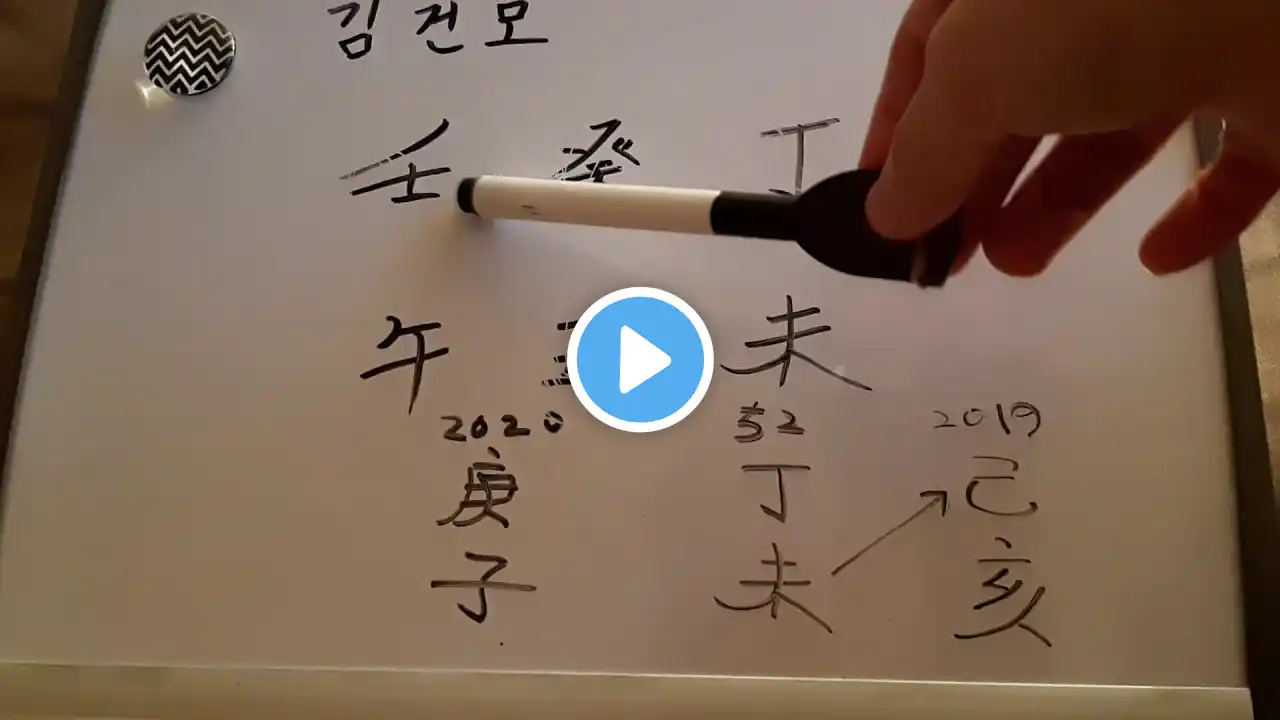 김건모
壬 癸 丁
午 未
2020 52 2019
庚 丁 己
子 未 亥